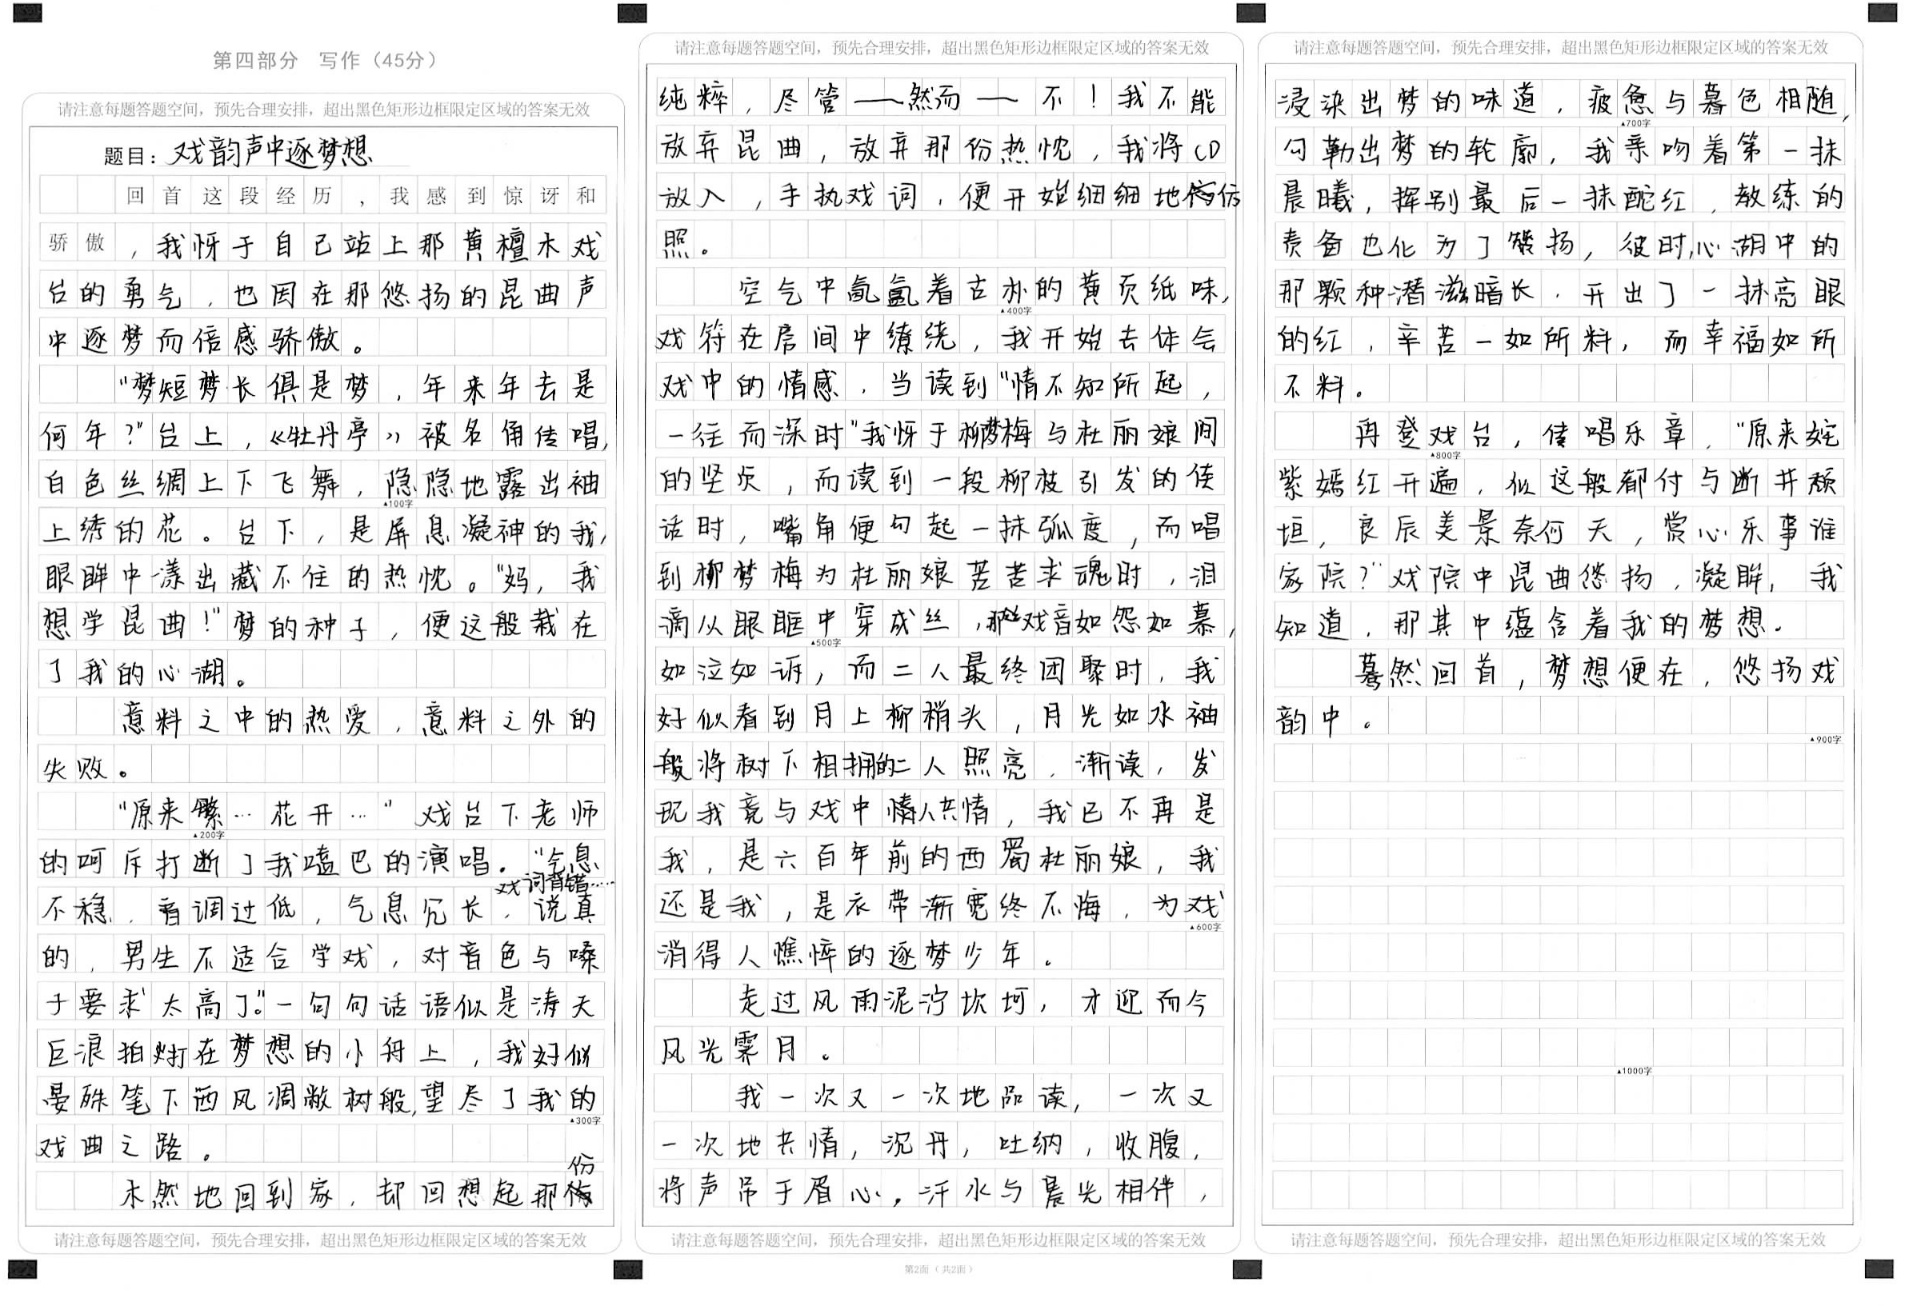 第四部分 写作（45分）
请注意每题答题空间，预先合理安排，超出黑色矩形边框限定区域的答案无效
题目：戏韵声中逐梦想
回首这段经历，我感到惊讶和
骄傲，我怀于自己站上那黄檀木戏
台的勇气，也因在那悠扬的昆曲声
中逐梦而倍感骄傲。
"梦短梦长俱是梦，年来年去是
何年？"台上，《牡丹亭》被名角传唱，
白色丝绸上下飞舞，隐隐地露出袖
▲100字
上绣的花。台下，是屏息凝神的我，
眼眸中漾出藏不住的热忱。"妈，我
想学昆曲！"梦的种子，便这般栽在
了我的心湖。
意料之中的热爱，意料之外的
失败。
"原来繁…花开…"戏台下老师
▲200字
的呵斥打断了我嗑巴的演唱。"气息
戏词背错……
不稳，音调过低，气息冗长，说真
的，男生不适合学戏，对音色与嗓
子要求太高了。"一句句话语似是涛天
巨浪拍打在梦想的小舟上，我好似
晏殊笔下西风凋敝树般，望尽了我的
▲300字
戏曲之路。
木然地回到家，却回想起那份
请注意每题答题空间，预先合理安排，超出黑色矩形边框限定区域的答案无效
请注意每题答题空间，预先合理安排，超出黑色矩形边框限定区域的答案无效
纯粹，尽管——然而——不！我不能
放弃昆曲，放弃那份热忱，我将CD
放入，手执戏词，便开始细细地仿
照。
空气中氤氲着古朴的黄页纸味，
▲400字
戏符在房间中缭绕，我开始去体会
戏中的情感，当读到"情不知所起，
一往而深时"我怀于柳梦梅与杜丽娘间
的坚贞，而读到一段柳枝引发的佳
话时，嘴角便勾起一抹弧度，而唱
到柳梦梅为杜丽娘苦苦求魂时，泪
滴从眼眶中穿成丝，那戏音如怨如慕，
▲500字
如泣如诉，而二人最终团聚时，我
好似看到月上柳梢头，月光如水袖
般将树下相拥的二人照亮，渐读，发
现我竟与戏中情人共情，我已不再是
我，是六百年前的西蜀杜丽娘，我
还是我，是衣带渐宽终不悔，为戏
▲600字
消得人憔悴的逐梦少年。
走过风雨泥泞坎坷，才迎而今
风光霁月。
我一次又一次地品读，一次又
一次地共情，沉丹，吐纳，收腹，
将声吊于眉心，汗水与晨光相伴，
请注意每题答题空间，预先合理安排，超出黑色矩形边框限定区域的答案无效
第2面（共2面）
请注意每题答题空间，预先合理安排，超出黑色矩形边框限定区域的答案无效
浸染出梦的味道，疲惫与暮色相随，
▲700字
勾勒出梦的轮廓，我亲吻着第一抹
晨曦，挥别最后一抹酡红，教练的
责备也化为了赞扬，彼时，心湖中的
那颗种潜滋暗长，开出了一抹亮眼
的红，辛苦一如所料，而幸福如所
不料。
再登戏台，传唱乐章，"原来姹
▲800字
紫嫣红开遍，似这般都付与断井颓
垣，良辰美景奈何天，赏心乐事谁
家院？"戏院中昆曲悠扬，凝眸，我
知道，那其中蕴含着我的梦想。
蓦然回首，梦想便在，悠扬戏
韵中。
▲900字
▲1000字
请注意每题答题空间，预先合理安排，超出黑色矩形边框限定区域的答案无效